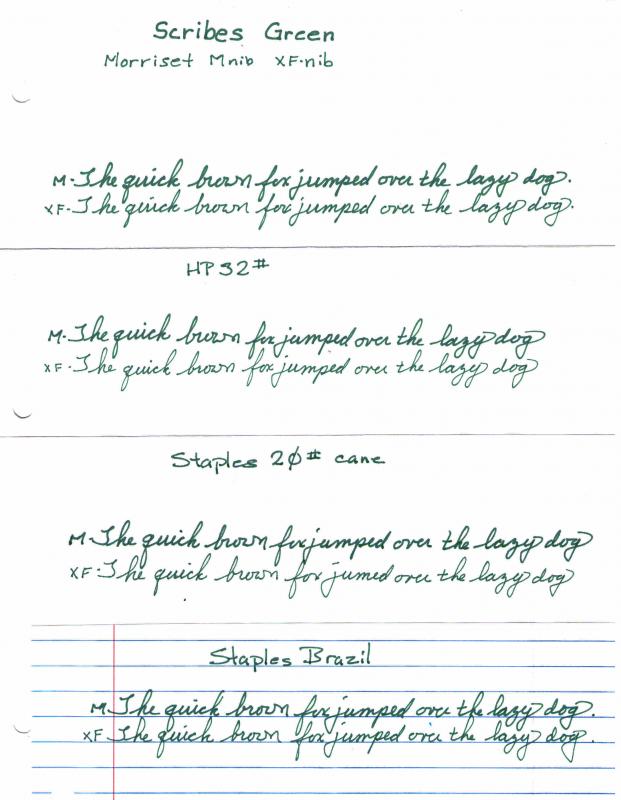 Scribes Green
Morriset M nib XF-nib
M-The quick brown fox jumped over the lazy dog.
XF-The quick brown fox jumped over the lazy dog.
HP 32#
M-The quick brown fox jumped over the lazy dog
XF-The quick brown fox jumped over the lazy dog
Staples 20# cane
M-The quick brown fox jumped over the lazy dog
XF-The quick brown fox jumed over the lazy dog
Staples Brazil
M-The quick brown fox jumped over the lazy dog.
XF-The quick brown fox jumped over the lazy dog.